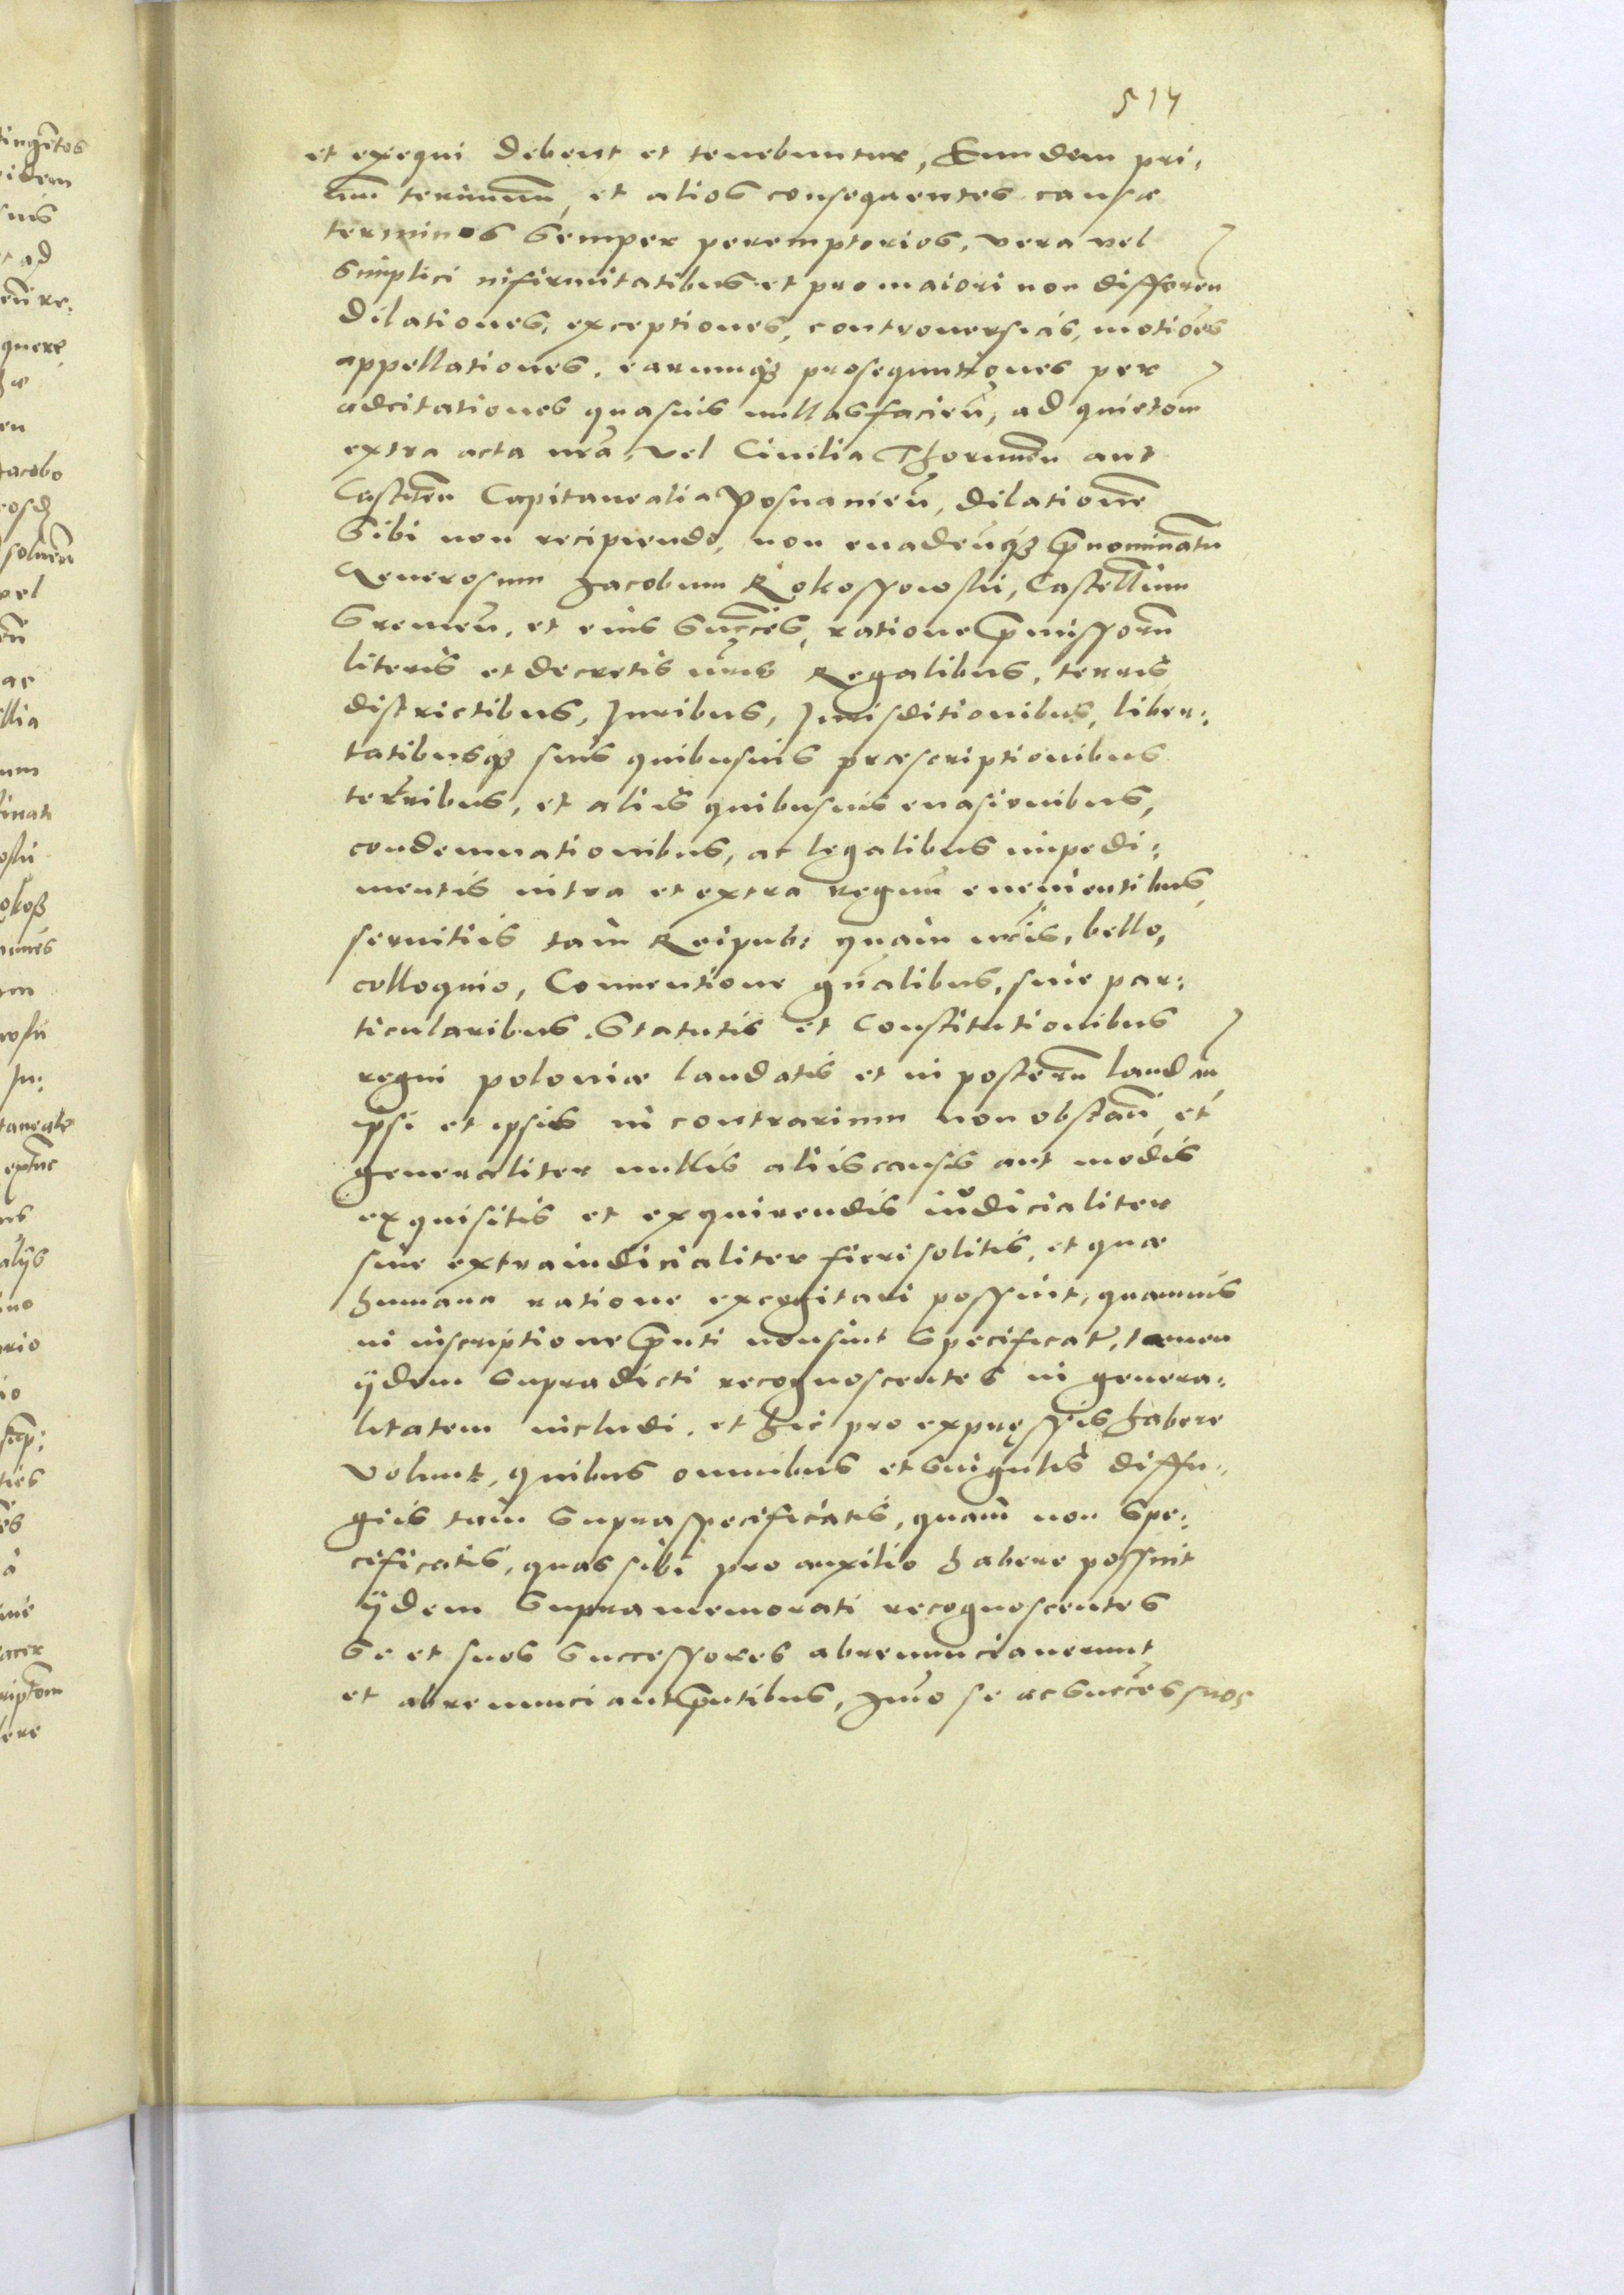 514
et exequi debent et tenebuntur, Eundem pri:
mũ terminũ, et alios consequentes causæ
terminos semper peremptorios, vera vel
simplici infirmitatibus et pro maiori non differeñ
dilationes, exceptiones, controuersias, motiões
appellationes, earumq₃ prosequutiones per
adcitationes quasuis nullas facieñ, ad quietem
extra acta nr̃a, vel Ciuilia Thorunen̄ aut
Castreñ Capitanealia Posnanieñ, dilationẽ
sibi non recipiendo, non euadeñq₃ p̃nominatũ
Generosum Jacobum Rokossowski, Castellanũ
Sremeñ, et eius succ̃es, ratione p̃missorũ
literis et decretis nr̃is Regalibus, terris
districtibus, Juribus, Jurisditionibus, liber:
tatibusq₃ suis quibusuis præscriptionibus
terribus, et alijs quibusuis euasionibus,
condemnationibus, ac legalibus impedi:
mentis intra et extra regnũ euenientibus,
seruitiis tam Reipub: quam nr̃is, bello,
colloquio, Conuentione gñalibus, siue par:
ticularibus, Statutis et Constitutionibus
regni poloniæ laudatis et in posterũ laudañ
ipsi et ipsis in contrarium non obstañ, et
generaliter nullis aliis causis aut modis
exquisitis et exquirendis iudicialiter
siue extraiudicialiter fieri solitis, et quæ
humana ratione excogitari possint, quamuis
in inscriptione p̃nti non sint specificat̃, tamen
ijdem supradicti recognoscentes in genera:
litatem includi, et hic pro expressis habere
volunt, quibus omnibus et singulis diffu:
giis tam supraspecificatis, quam non spe:
cificatis, quas sibi pro auxilio habere possint
ijdem supramemorati recognoscentes
se et suos successores abrenunciauerunt
et abrenunciant p̃ntibus, Jmo se ac succ̃es suos